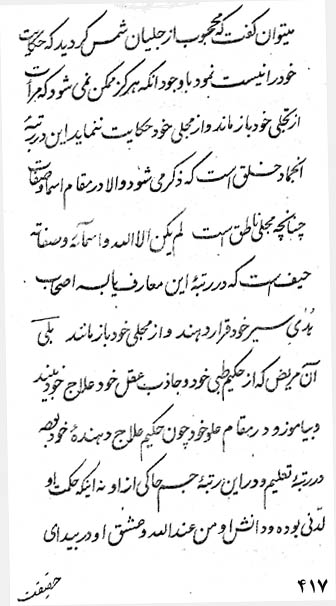 میتوان گفت که محجوب از جلیان شمس گردید که حکایت
خود را نیست نمود با وجود آنکه هرگز ممکن نمی شود که مرآت
از تجلی خود باز ماند و از مجلی خود حکایت ننماید این در رتبهٔ
انجماد خلق است که ذکر می شود والا در مقام اسماء وصفات
چنانچه مجلی ناطق است لم یکن الا الله و اسمائه وصفاته
حیف است که در رتبهٔ این معارف یا لبه اصحاب
هُدی سیر خود قرار دهند و از مجلی خود باز مانند بلی
آن مریض که از حکیم طبی خود و جاذب عقل خود علاج خود بیند
و بیاموزد در مقام علو خود چون حکیم علاج دهندهٔ خود بوده
در رتبهٔ تعلیم و در این رتبهٔ جسم حاکی از او نه اینکه حکمت او
لدنی بوده و دانش او من عند الله و عشق او در بیدای
۴۱۷
حقیقت